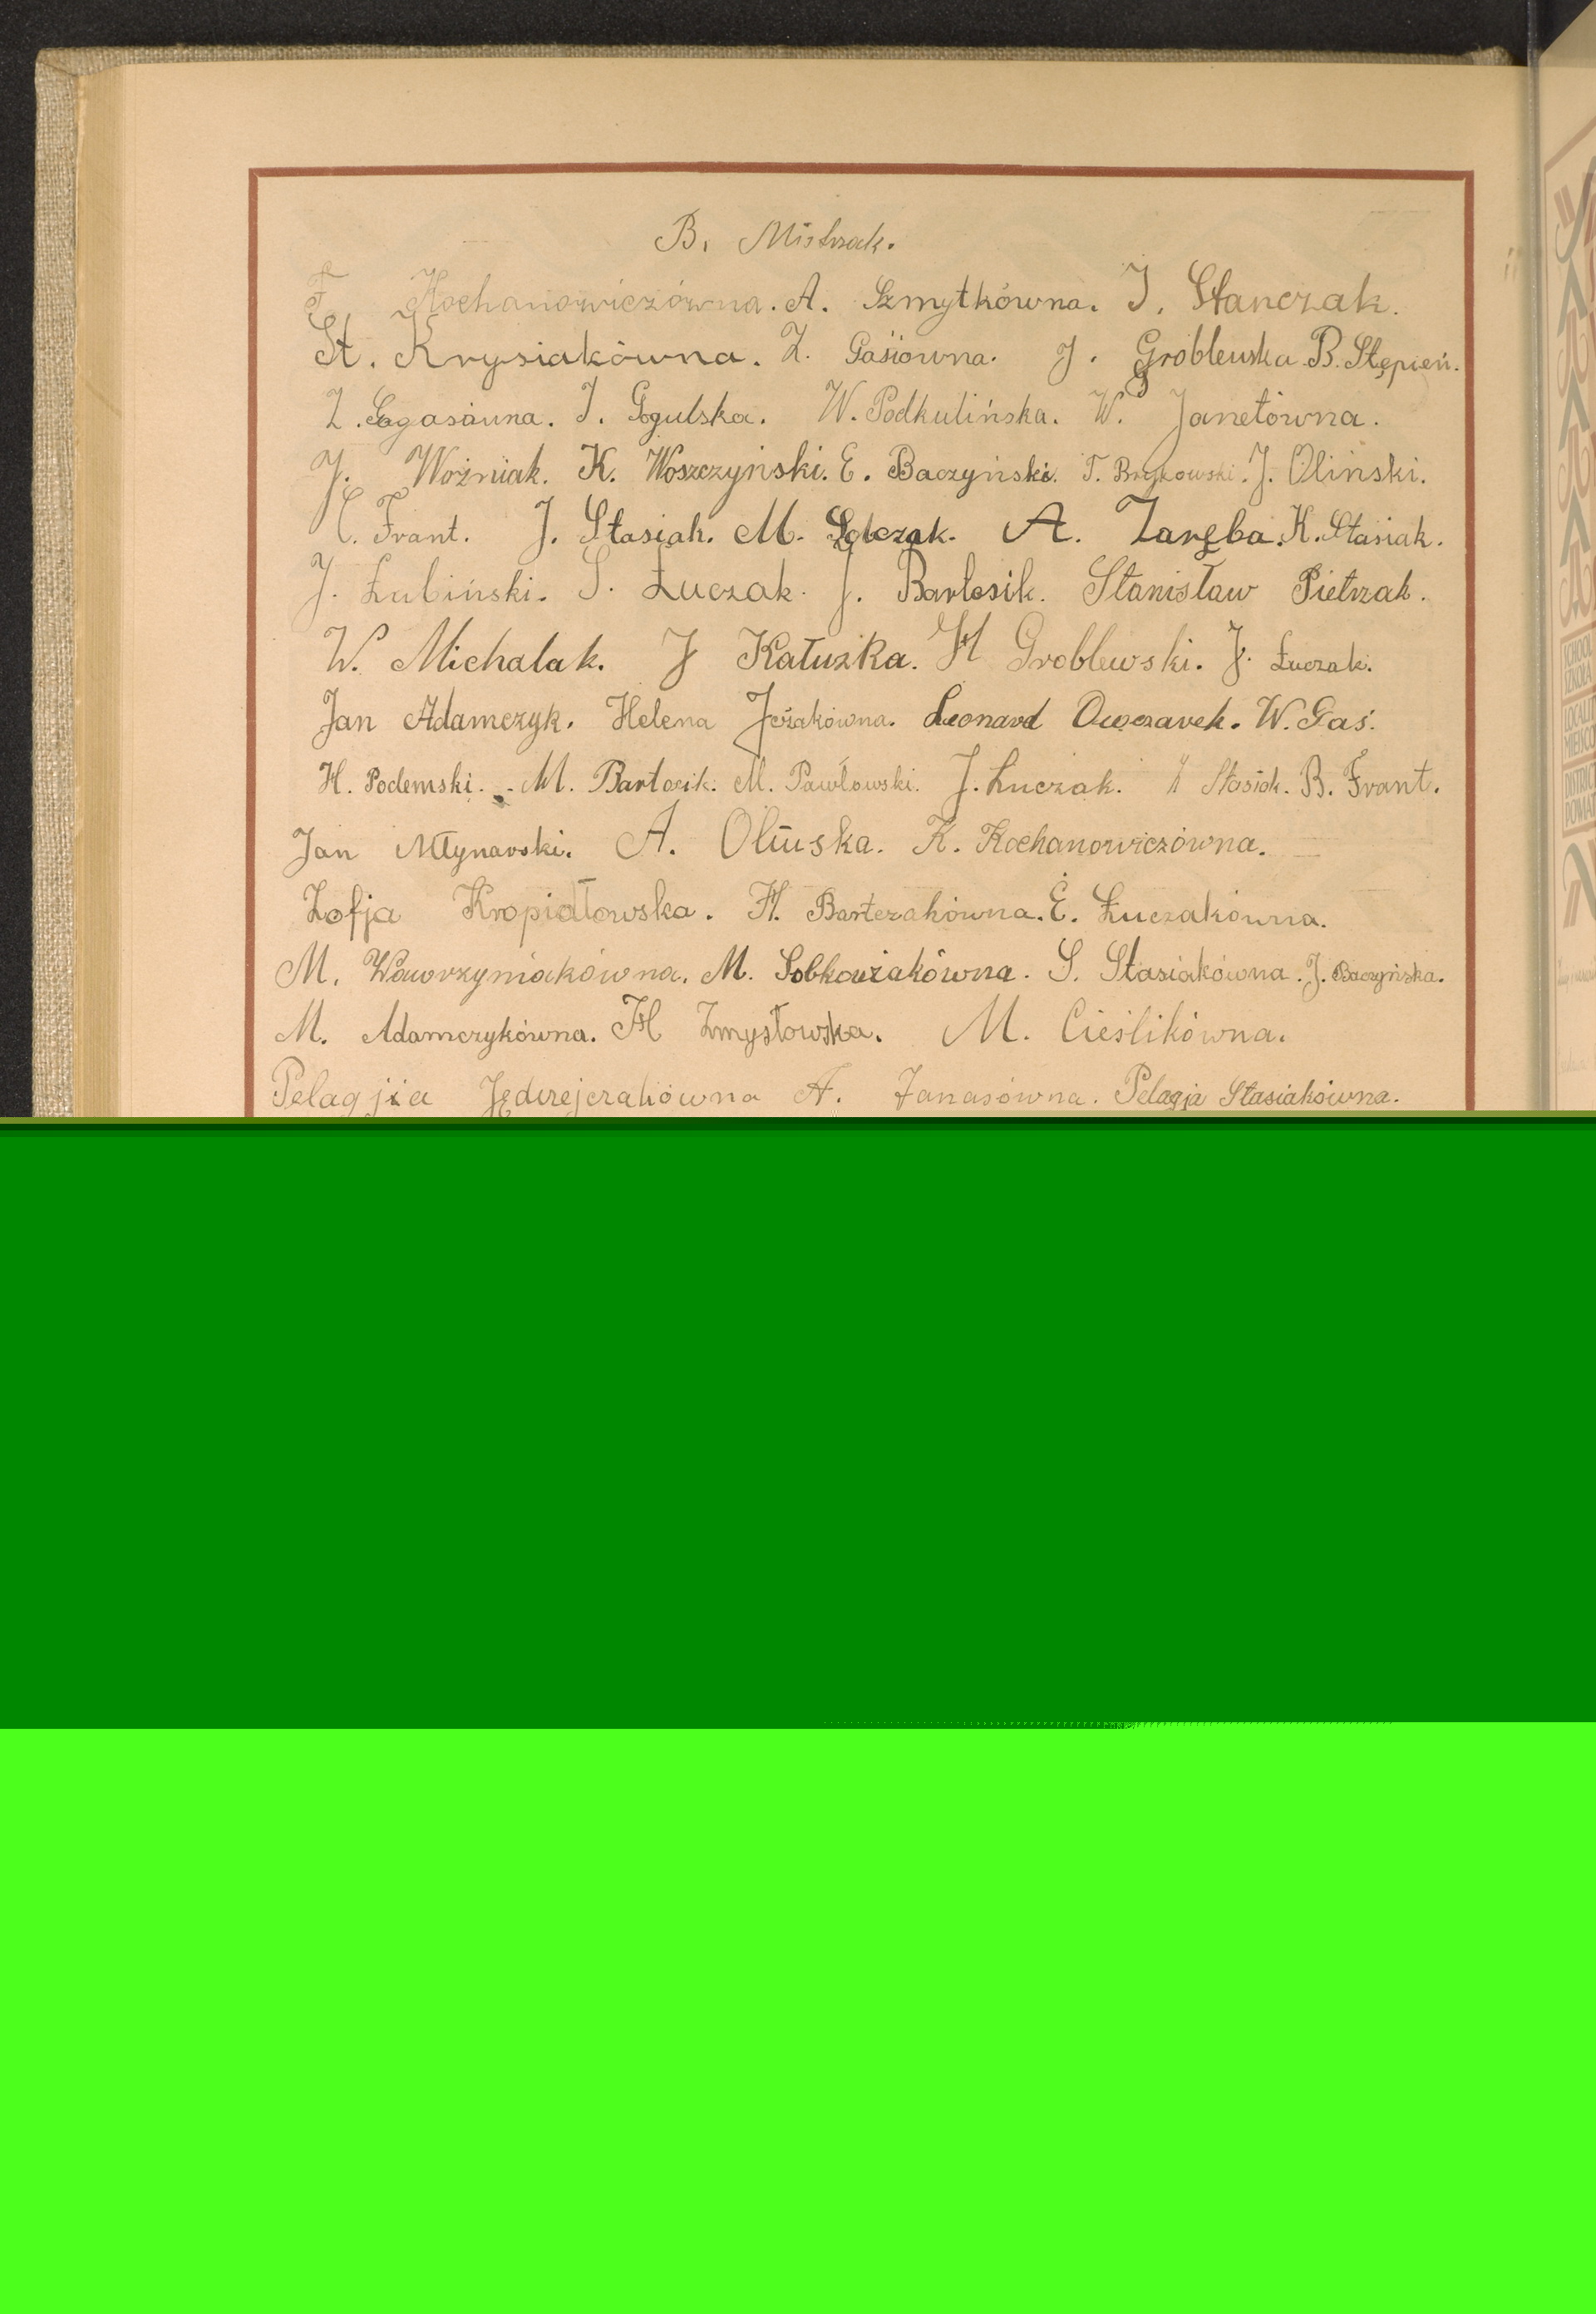 B. Mistrzak.
F Kochanowiczówna. A. Szmytkówna. J. Stanczak.
St. Krysiakówna. Z. Gasiowna. J. Groblewska. B. Stępień.
Z. J. Gogulska. W. Podkulińska. W. Janetówna.
J. Woźniak. K. Woszczyński. E. Baczyński. T. Brykowski. J. Oliński.
Frant. J. Stasiak. M. Sobczak. A. Zaręba. K. Stasiak.
J. Łubiński. S. Łuczak. J. Bartosik. Stanisław Pietrzak.
W. Michalak. J Kałuzka. H Groblewski. J. Łuczak.
Jan Adamczyk. Helena Jeżakówna. Leonard Owczarek. W. Gaś.
H. Podemski. M. Bartosik. M. Pawłowski. J. Łuczak. Stasiak. B. Frant.
Jan Młynarski. A. Olińska. K. Kochanowiczówna.
Zofja Kropidłowska. H. Bartczakówna. E. Łuczakówna.
M. Wawrzyniakówna. M. Sobkowiakówna. S. Stasiakówna. J. Baczyńska.
M. Adamczykówna. H Zmysłowska. M. Cieślikówna.
Pelagjia Jędrzejczakówna A. Janasówna. Pelagja Stasiakówna.
SCHOOL
SZKOŁA